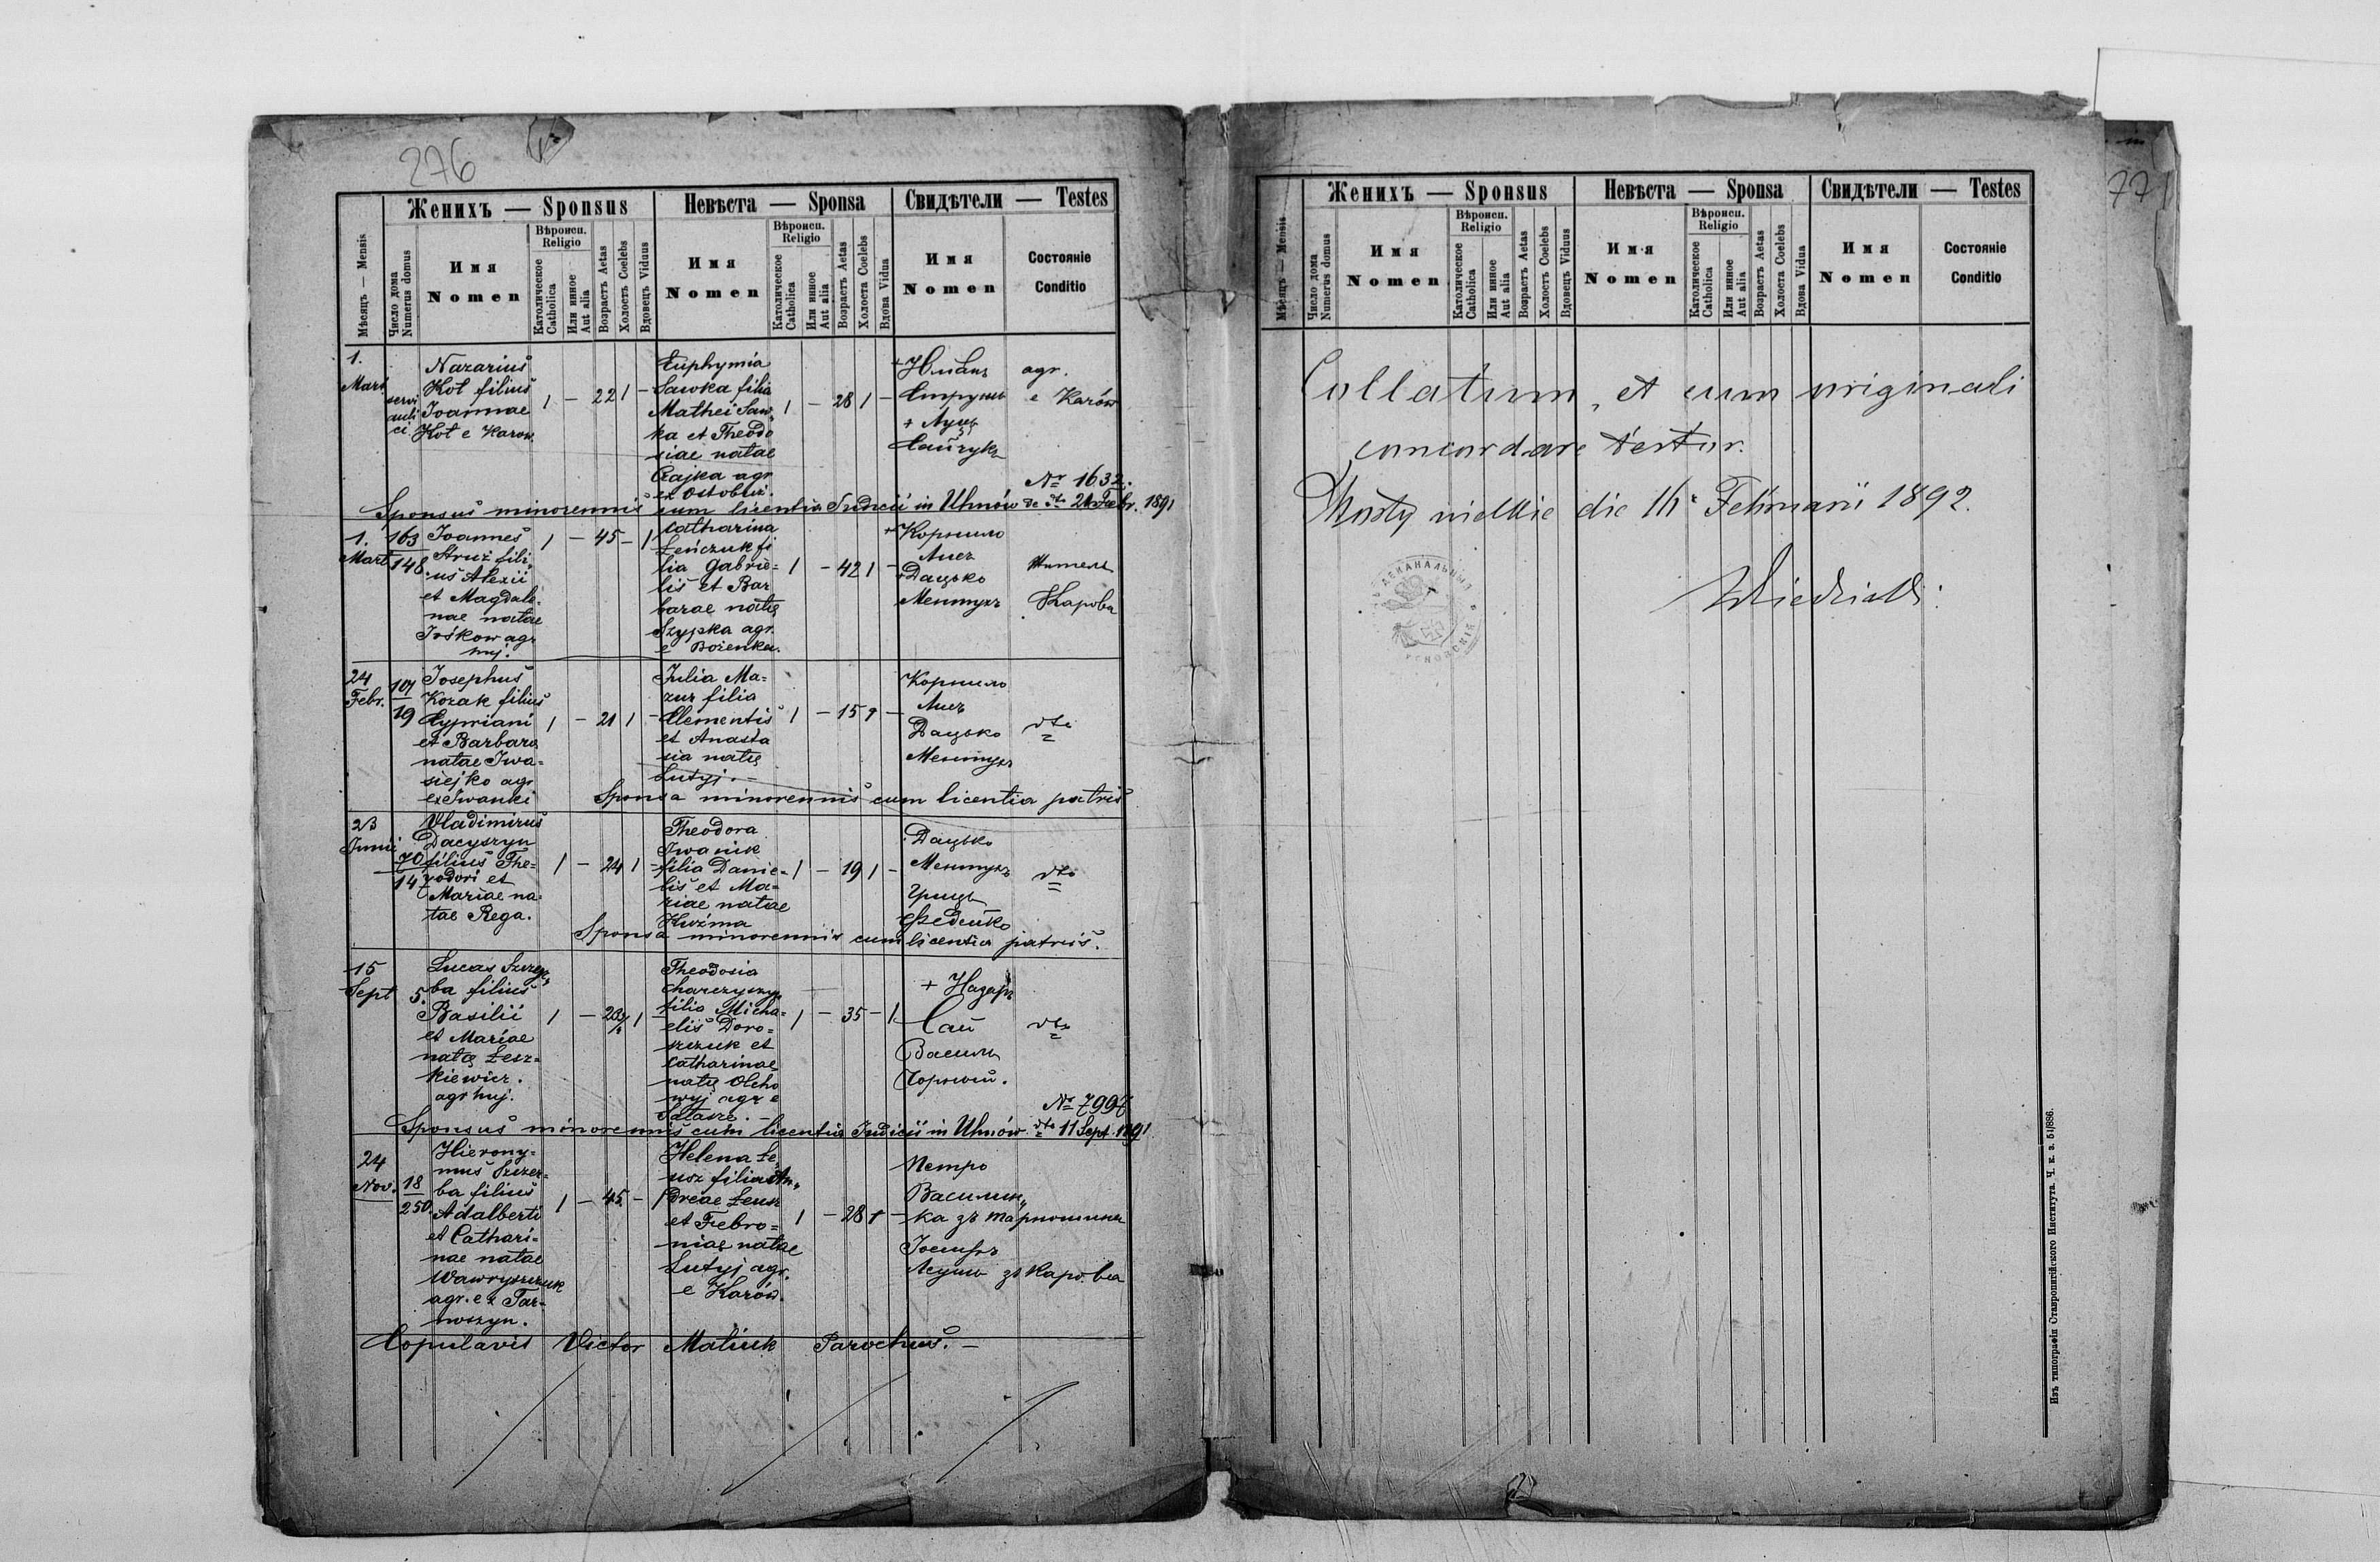 276
Женихъ — Sponsus
Невѣста — Sponsa
Свидѣтели — Testes
Мѣсяцъ — Mensis
Число дома
Numerus domus
Имя
Nomen
Вѣроисп.
Religio
Католическое
Catholica
Или инное
Aut alia
Возрастъ Aetas
Холостъ Coelebs
Вдовецъ Viduus
Имя
Nomen
Вѣроисп.
Religio
Католическое
Catholica
Или инное
Aut alia
Возрастъ Aetas
Холоста Coelebs
Вдова Vidua
Имя
Nomen
Состояніе
Conditio
1.
Mart.
servi
auli
ci.
Nazarius
Kot filius
Joannae
Kot e Karow
1 — 22 1 —
Euphymia
Sawka filia
Mathei Saw„
ka et Theodo
siae natae
Czajka agr
ex Ostobuż.
1 — 28 1 —
agr.
e Karów
№ 1632.
Sponsus minorennis cum licentia Judicii in Uhnów de dto 24 Febr. 1891
1.
Mart
163
148
Joannes
Struż fili„
us Alexii
et Magdale„
nae natae
Iśków agr
huj.
1 — 45 — 1
Catharina
Łeńczuk fi
lia Gabrie=
lis et Bar
barae natę
Szypka agr.
e Bożenka.
1 — 42 1 —
+ Корнило
Лисъ
+ Дацько
Ментухъ
Житель
Карова
24
Febr.
107
19
Josephus
Kozak filius
Cypriani
et Barbara
natae Iwa=
siejko agr
ex Iwanki
1 — 21 1 —
Julia Ma=
zur filia
Clementis
et Anasta
sia natę
Lutyj. —
1 — 15 1 —
Корнило
Лисъ
Дацько
Ментухъ
dto
Sponsa minorennis cum licentia patris
23
Junii
70
147
Vladimirus
Dacyszyn
filius The=
odori et
Mariae na=
tae Rega.
1 — 24 1 —
Theodora
Iwanik
filia Danie=
lis et Ma=
riae natae
Kuźma
1 — 19 1 —
Дацько
Ментухъ
Грицъ
Федейко
dto
Sponsa minorennis cum licentia patris.
15
Sept
5.
Lucas Szczer„
ba filius
Basilii
et Mariae
natę Łesz=
kiewicz.
agr huj.
1 — 23½ 1
Theodosia
Charczyszyn
filia Micha=
elis Doro=
szczuk et
Catharinae
natę Olcho
wyj agr e
Salasze. —
1 — 35 — 1
+ Назаръ
Сай
Василь
Чорный.
dto
№ 7997
Sponsus minorennis cum licentia Judicii in Uhnów dto 11 Sept. 1891
24
Nov.
18
250.
Hierony-
mus Szczer-
ba filius
Adalberti
et Cathari-
nae natae
Wawryszczuk
agr. ex Tar-
noszyn.
1 — 45 — 1
Helena Łe„
usz filia An„
dreae Łeusz
et Febro=
niae natae
Lutyj agr.
e Karów.
1 — 28 1 —
Петро
Василин„
ка зъ Тарношина
Іосифъ
Леушъ зъ Карова
Copulavit Victor Matiuk Parochus. —
771
Женихъ — Sponsus
Невѣста — Sponsa
Свидѣтели — Testes
Мѣсяцъ — Mensis
Число дома
Numerus domus
Имя
Nomen
Вѣроисп.
Religio
Католическое
Catholica
Или инное
Aut alia
Возрастъ Aetas
Холостъ Coelebs
Вдовецъ Viduus
Имя
Nomen
Вѣроисп.
Religio
Католическое
Catholica
Или инное
Aut alia
Возрастъ Aetas
Холоста Coelebs
Вдова Vidua
Имя
Nomen
Состояніе
Conditio
Collatum, et cum originali
concordare testor.
Mosty wielkie die 16 Februarii 1892.
Изъ типографіи Ставропигійского Института. Ч. к. з. 51/886.